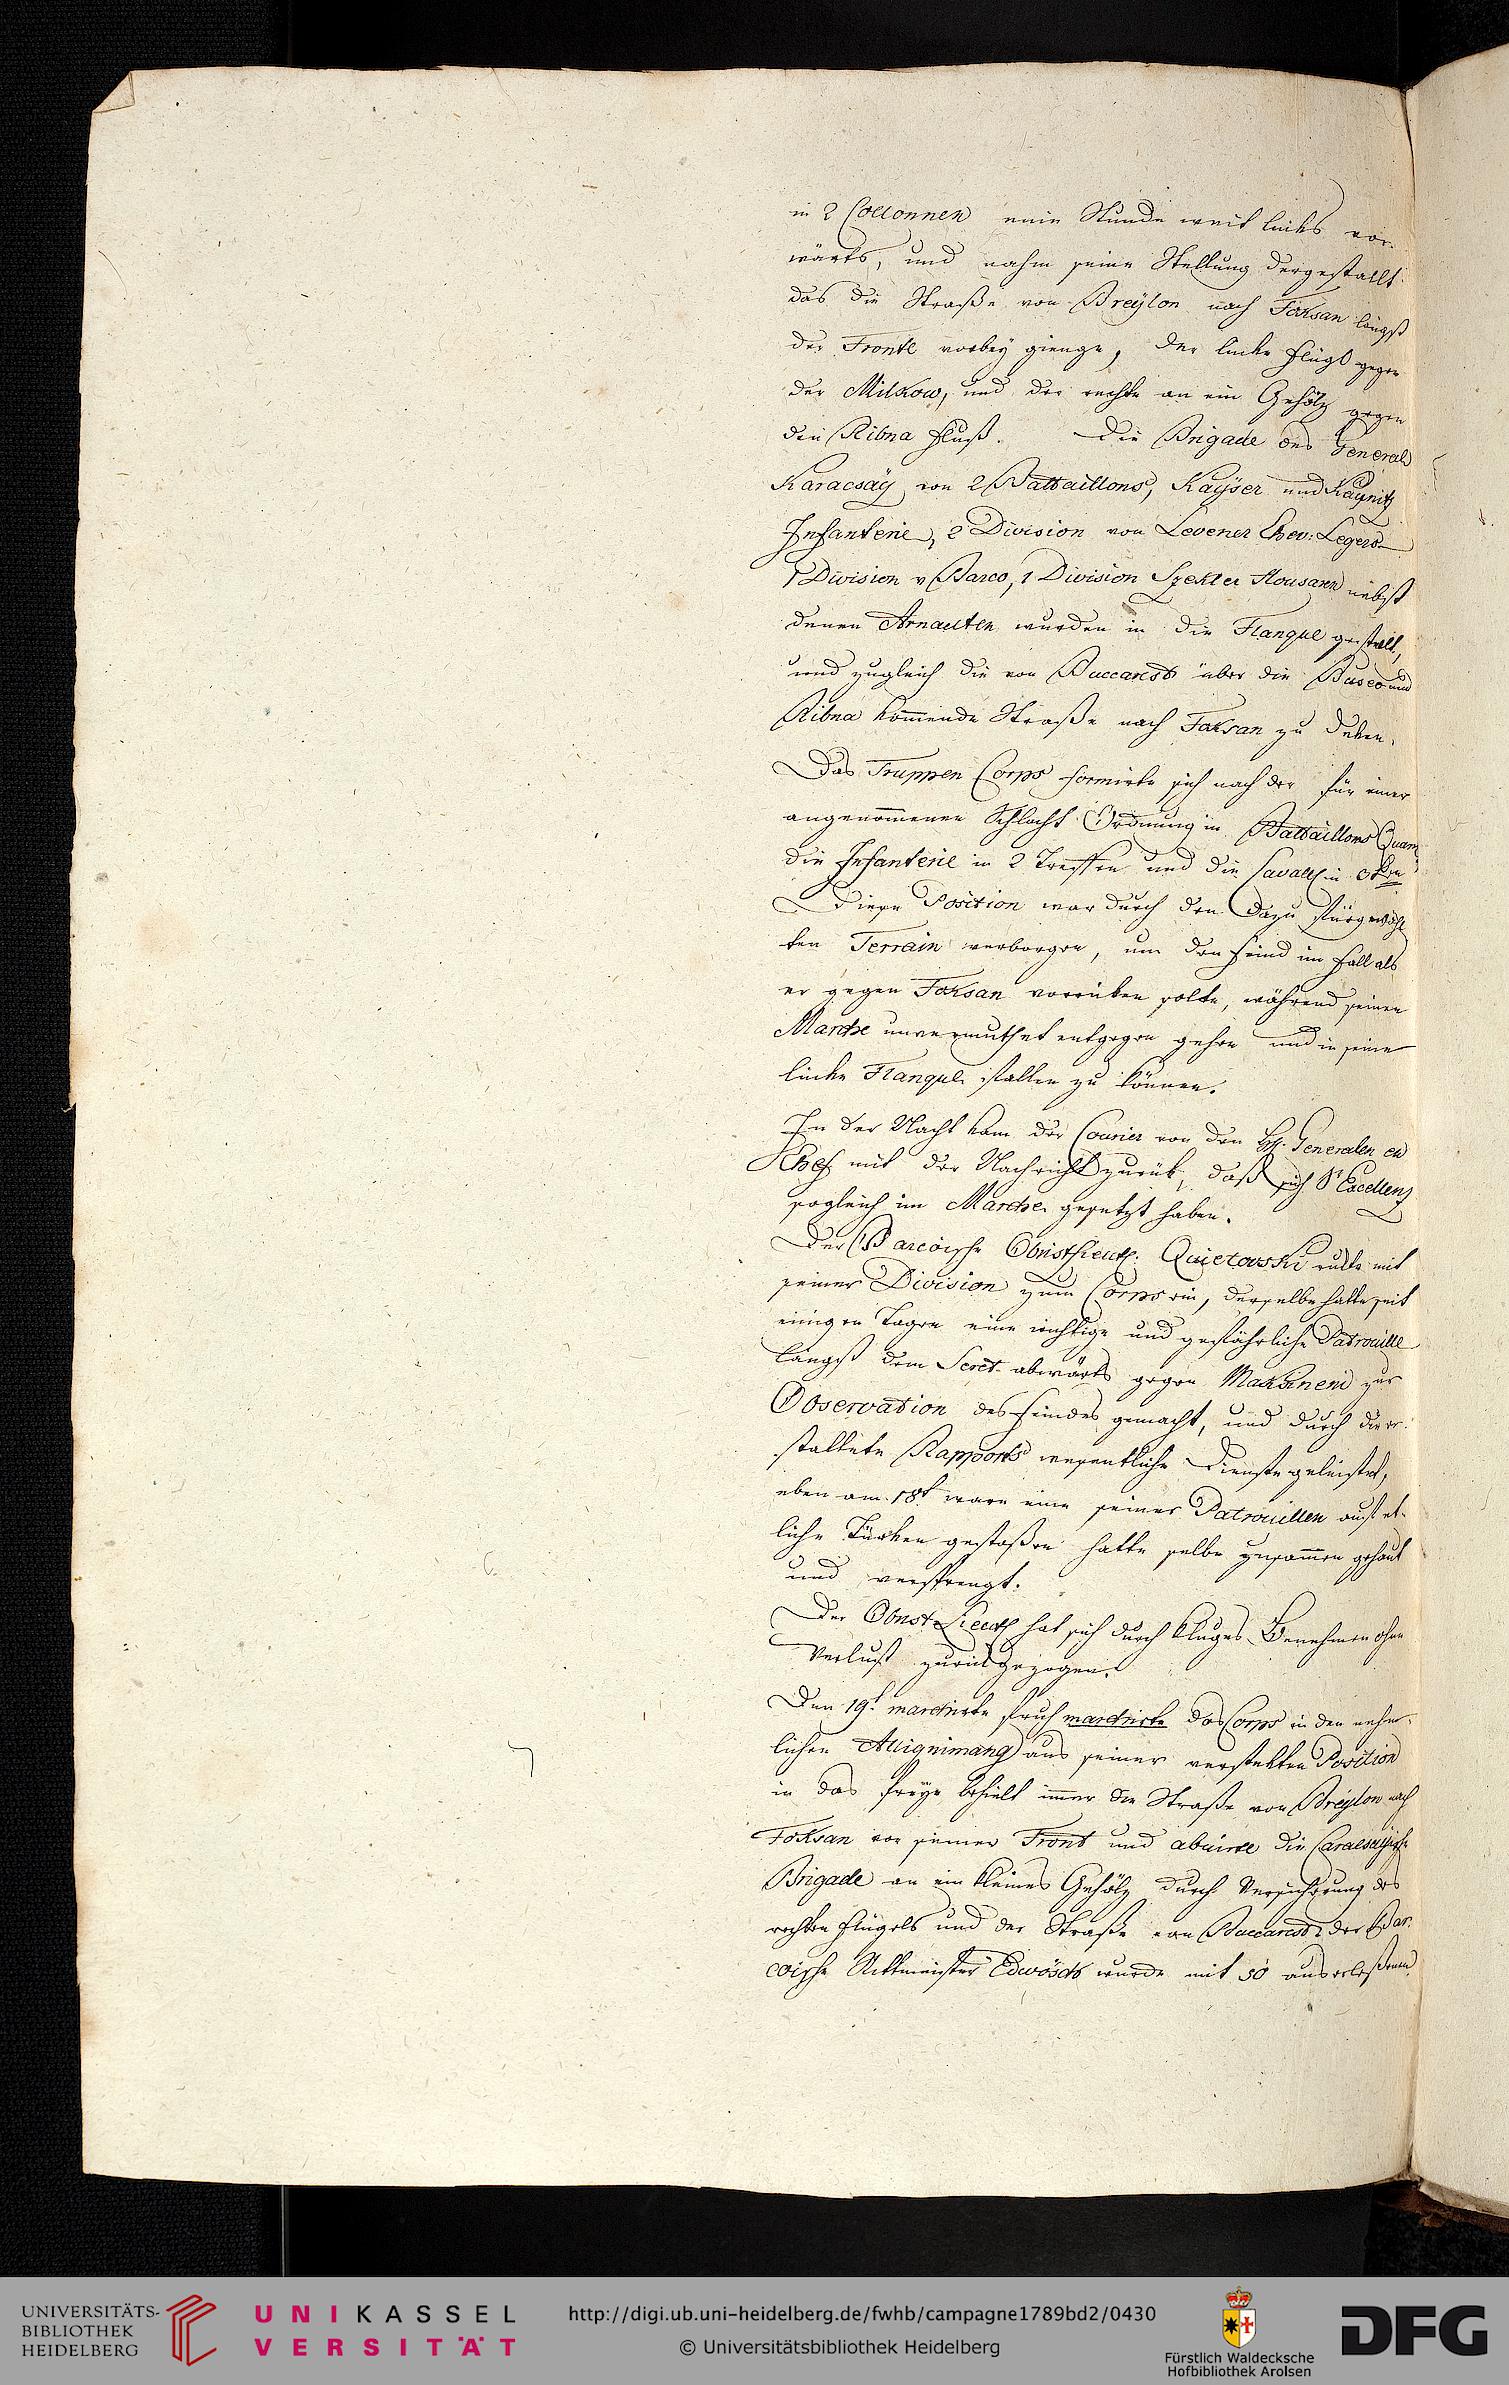 in 2 Collonnen eine Stunde weit links vor-
wärts, und nahm seine Stellung dergestallt
das die Straße von Breÿlon nach Foksan längst
der Fronte vorbeÿ gienge, der linke Flügl gegen
der Milkow, und der rechte an ein Gehölz gegen
den Ribna Fluß. Die Brigade des Generals
Karacsaÿ von 2 Battaillons, Kaÿser und Kaunitz
Infanterie, 2 Division von Levener Chev: Legers
1 Division v Barco, 1 Division Szekler Housaren nebst
denen Arnauten wurden in die Flanque gestellt,
und zugleich die von Buccarest über die Buseo und
Ribna kom̄ende Straße nach Foksan zu deken.
Das Truppen Corps formirte sich nach der für einer
angenom̄enen Schlacht Ordnung in Battaillons Quaré
die Infanterie in 2 Treffen und die Cavall in 3ten
Diese Position war durch den dazu fürgewähl
ten Terrain verborgen, um den Feind im Fall als
er gegen Foksan vorrüken solte, während seinen
Marche unvermuthet entgegen gehen und in seine
linke Flanque fallen zu können.
In der Nacht kam der Courier von den HH. Generalen en
Chef mit der Nachricht zurük, daß sich Sr Excellenz
sogleich im Marche gesetzt haben.
Der Barcoische Obristlieut. Quietovski rukte mit
seiner Division zum Corps ein, derselbe hatte seit
einigen Tagen eine wichtige und gefährliche Patrouille
längst dem Seret abwärts gegen Maksineni zur
Observation des Feindes gemacht, und durch die er-
stattete Rapports wesentliche Dienste geleistet,
eben am 18t ware eine seiner Patrouillen auf et-
liche Türken gestoßen hatte selbe zusam̄en gehaut
und versprengt.
Der Obrist Lieut hat sich durch kluges Benehmen ohne
Verlust zurükgezogen.
Den 19t marchirte fruh marchirte das Corps in den nehm-
lichen Allignimang aus seiner verstekten Position
in das freÿe behielt im̄er die Straße von Breÿlon nach
Foksan vor seiner Front und die Caracsaÿische
Brigade an ein kleines Gehölz durch Versicherung des
rechten Flügels und der Straße von Buccarest, der Bar-
coische Rittmeister Edwösch wurde mit 50 auserlesenen
UNIVERSITÄTS-
BIBLIOTHEK
HEIDELBERG
UNIKASSEL
VERSITÄT
http://digi.ub.uni-heidelberg.de/fwhb/campagne1789bd2/0430
© Universitätsbibliothek Heidelberg
Fürstlich Waldecksche
Hofbibliothek Arolsen
DFG